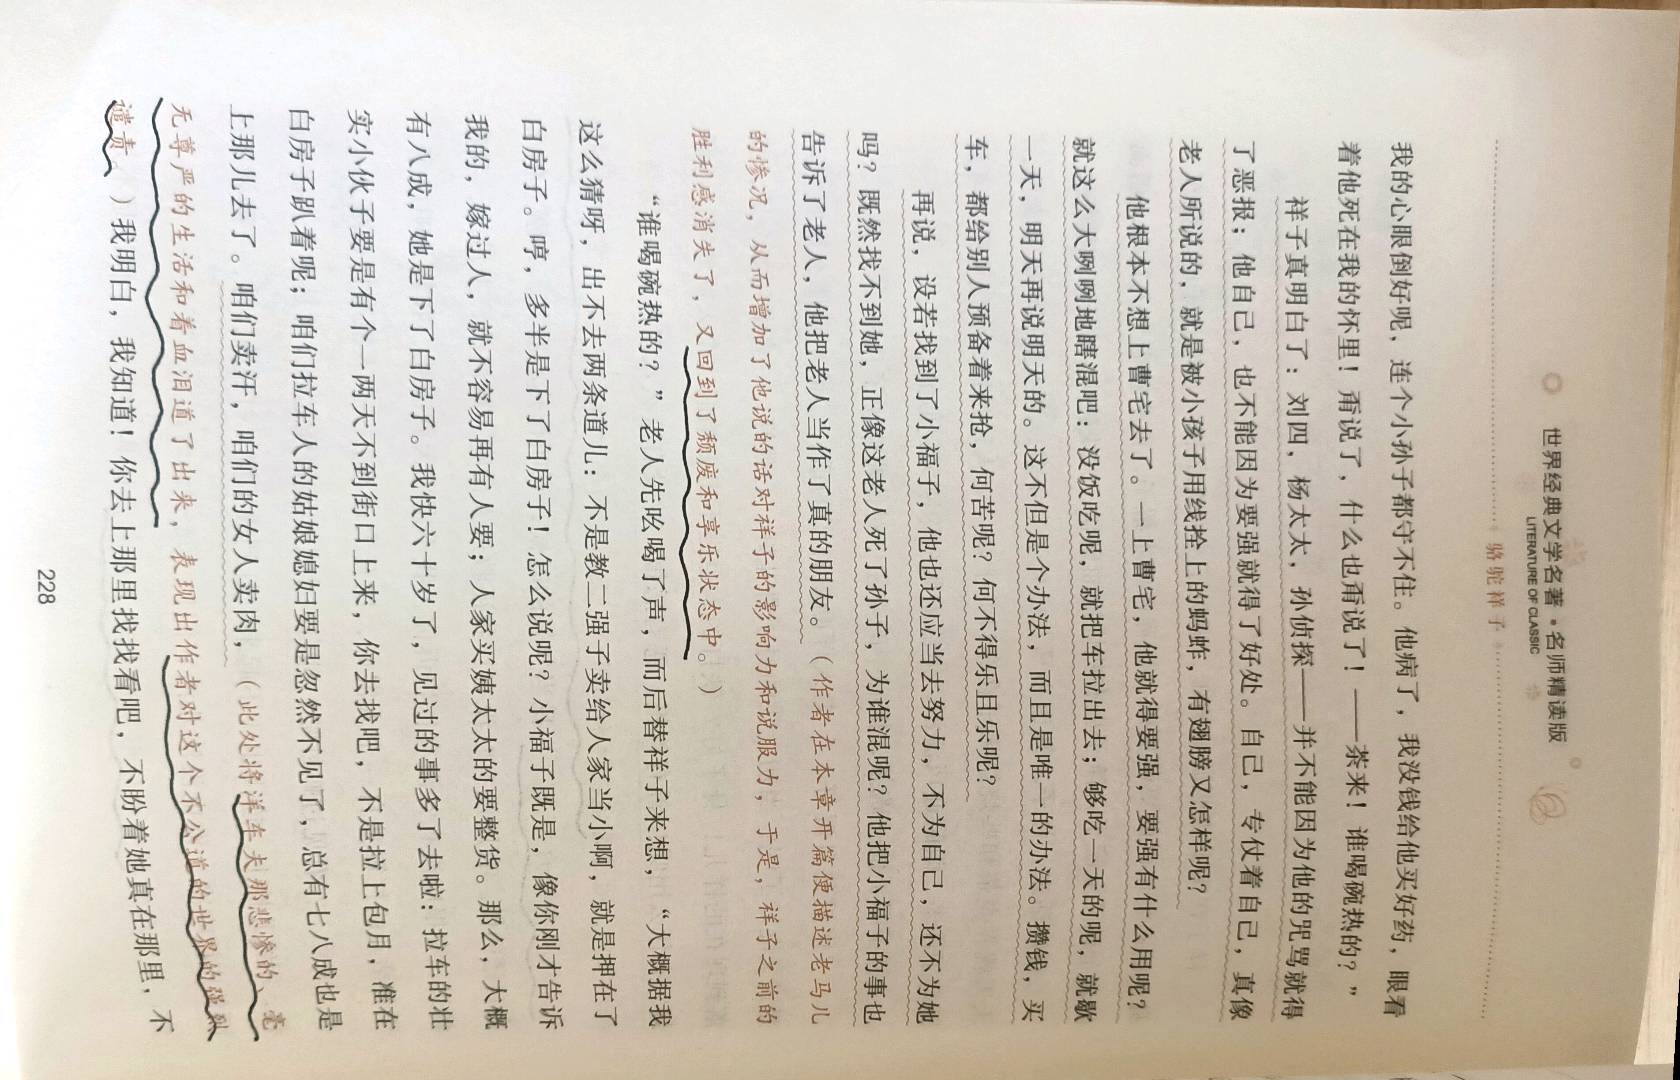 世界经典文学名著·名师精读版
LITERATURE OF CLASSIC
骆驼祥子
我的心眼倒好呢，连个小孙子都守不住。他病了，我没钱给他买好药，眼看
着他死在我的怀里！甭说了，什么也甭说了！——茶来！谁喝碗热的？”
祥子真明白了：刘四，杨太太，孙侦探——并不能因为他的咒骂就得
了恶报；他自己，也不能因为要强就得了好处。自己，专仗着自己，真像
老人所说的，就是被小孩子用线拴上的蚂蚱，有翅膀又怎样呢？
他根本不想上曹宅去了。一上曹宅，他就得要强，要强有什么用呢？
就这么大咧咧地瞎混吧：没饭吃呢，就把车拉出去；够吃一天的呢，就歇
一天，明天再说明天的。这不但是个办法，而且是唯一的办法。攒钱，买
车，都给别人预备着来抢，何苦呢？何不得乐且乐呢？
再说，设若找到了小福子，他也还应当去努力，不为自己，还不为她
吗？既然找不到她，正像这老人死了孙子，为谁混呢？他把小福子的事也
告诉了老人，他把老人当作了真的朋友。（作者在本章开篇便描述老马儿
的惨况，从而增加了他说的话对祥子的影响力和说服力，于是，祥子之前的
胜利感消失了，又回到了颓废和享乐状态中。）
“谁喝碗热的？”老人先吆喝了声，而后替祥子来想，“大概据我
这么猜呀，出不去两条道儿：不是教二强子卖给人家当小啊，就是押在了
白房子。哼，多半是下了白房子！怎么说呢？小福子既是，像你刚才告诉
我的，嫁过人，就不容易再有人要；人家买姨太太的要整货。那么，大概
有八成，她是下了白房子。我快六十岁了，见过的事多了去啦：拉车的壮
实小伙子要是有个一两天不到街口上来，你去找吧，不是拉上包月，准在
白房子趴着呢；咱们拉车人的姑娘媳妇要是忽然不见了，总有七八成也是
上那儿去了。咱们卖汗，咱们的女人卖肉，（此处将洋车夫那悲惨的、毫
无尊严的生活和着血泪道了出来，表现出作者对这个不公道的世界的强烈
谴责。）我明白，我知道！你去上那里找找看吧，不盼着她真在那里，不
228